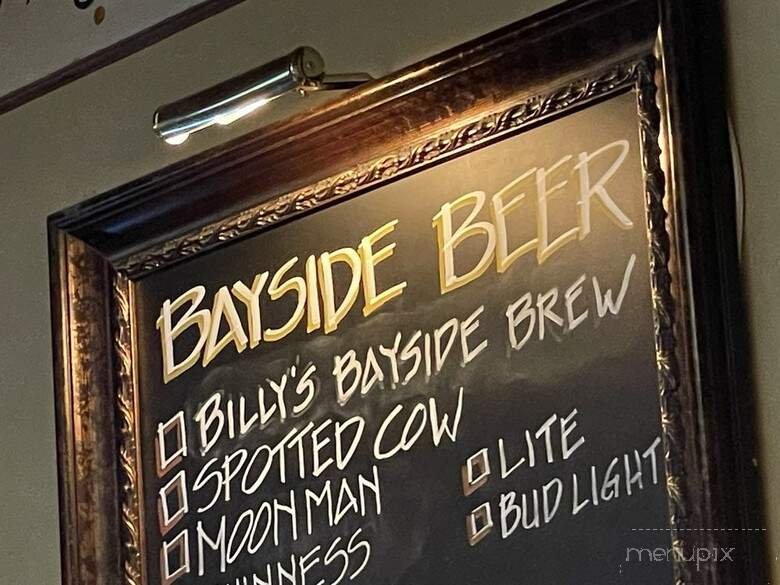 BAYSIDE BEER
BILLY'S BAYSIDE BREW
SPOTTED COW
MOON MAN
LITE
BUD LIGHT
menupix